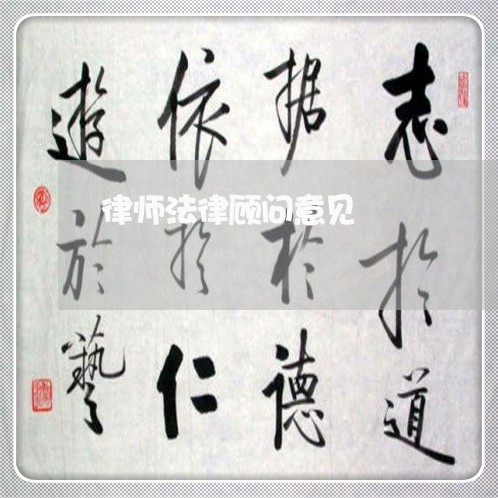 志於道
据於德
依於仁
遊於藝
律师法律顾问意见